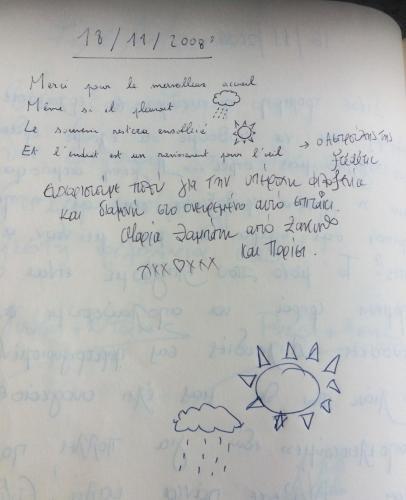 18/11/2008
Merci pour le merveilleux accueil
Même si il pleuvait
Le souvenir restera ensoleillé
Et l'endroit est un ravissement pour l'œil → ο Αστερόπλης της
ευχαριστούμε πολύ για την υπέροχη φιλοξενία
και διαμονή στο ονειρεμένο αυτό σπιτάκι.
Μαρία από Ζάκυνθο
και Παρίσι.
xxx♡xxx